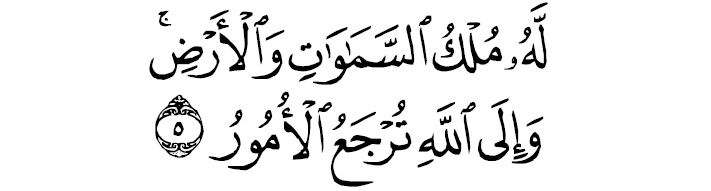 لَّهُۥ مُلۡكُ ٱلسَّمَٰوَٰتِ وَٱلۡأَرۡضِۚ
وَإِلَى ٱللَّهِ تُرۡجَعُ ٱلۡأُمُورُ ٥